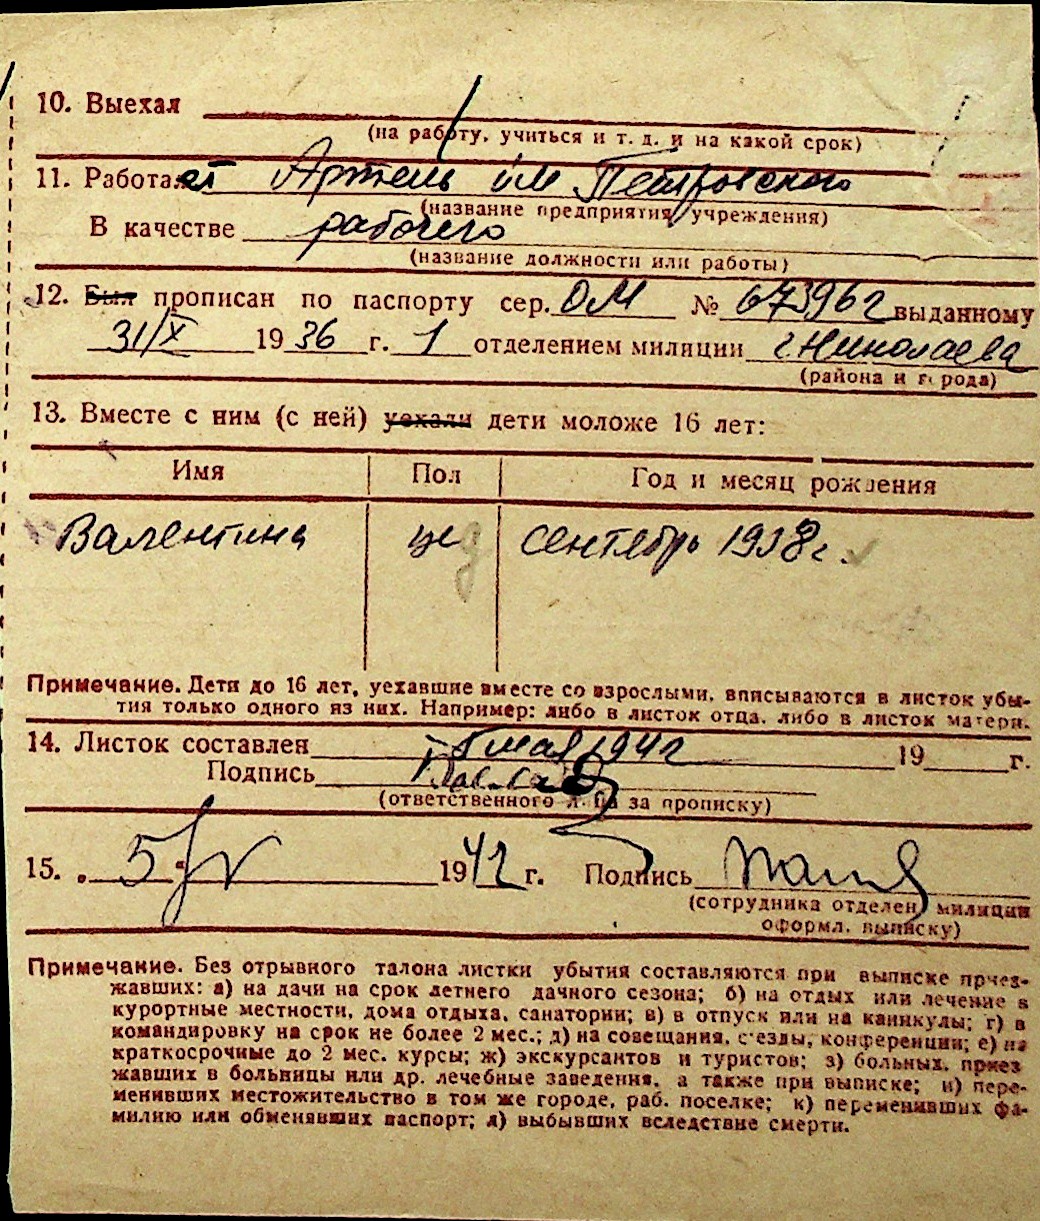 10. Выехал
(на работу, учиться и т. д. и на какой срок)
11. Работает Артель им Петровского
(название предприятия, учреждения)
В качестве рабочего
(название должности или работы)
12. Был прописан по паспорту сер. ОМ № 673962 выданному
31/X 1936 г. 1 отделением милиции г. Николаева
(района и города)
13. Вместе с ним (с ней) уехали дети моложе 16 лет:
Имя Пол Год и месяц рождения
Валентина сентябрь 1938 г.
Примечание. Дети до 16 лет, уехавшие вместе со взрослыми, вписываются в листок убы-
тия только одного из них. Например: либо в листок отца, либо в листок матери.
14. Листок составлен мая 1942 19 г.
Подпись
(ответственного лица за прописку)
15. 5 V 1942 г. Подпись
(сотрудника отделен. милиции
оформл. выписку)
Примечание. Без отрывного талона листки убытия составляются при выписке приез-
жавших: а) на дачи на срок летнего дачного сезона; б) на отдых или лечение в
курортные местности, дома отдыха, санатории; в) в отпуск или на каникулы; г) в
командировку на срок не более 2 мес.; д) на совещания, съезды, конференции; е) на
краткосрочные до 2 мес. курсы; ж) экскурсантов и туристов; з) больных, приез
жавших в больницы или др. лечебные заведения, а также при выписке; и) пере-
менивших местожительство в том же городе, раб. поселке; к) переменивших фа-
милию или обменявших паспорт; л) выбывших вследствие смерти.